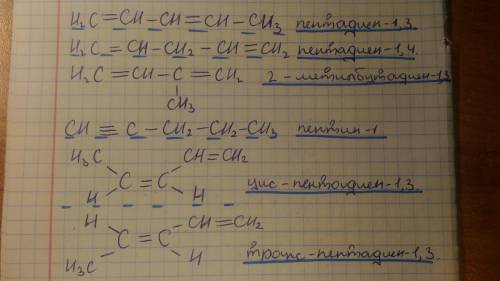 H₂C=CH-CH=CH-CH₃ пентадиен-1,3.
H₂C=CH-CH₂-CH=CH₂ пентадиен-1,4.
H₂C=CH-C=CH₂ 2-метилбутадиен-1,3
CH₃
CH≡C-CH₂-CH₂-CH₃ пентин-1
H₃C CH=CH₂
C=C
H H цис-пентадиен-1,3.
H CH=CH₂
C=C
H₃C H транс-пентадиен-1,3.